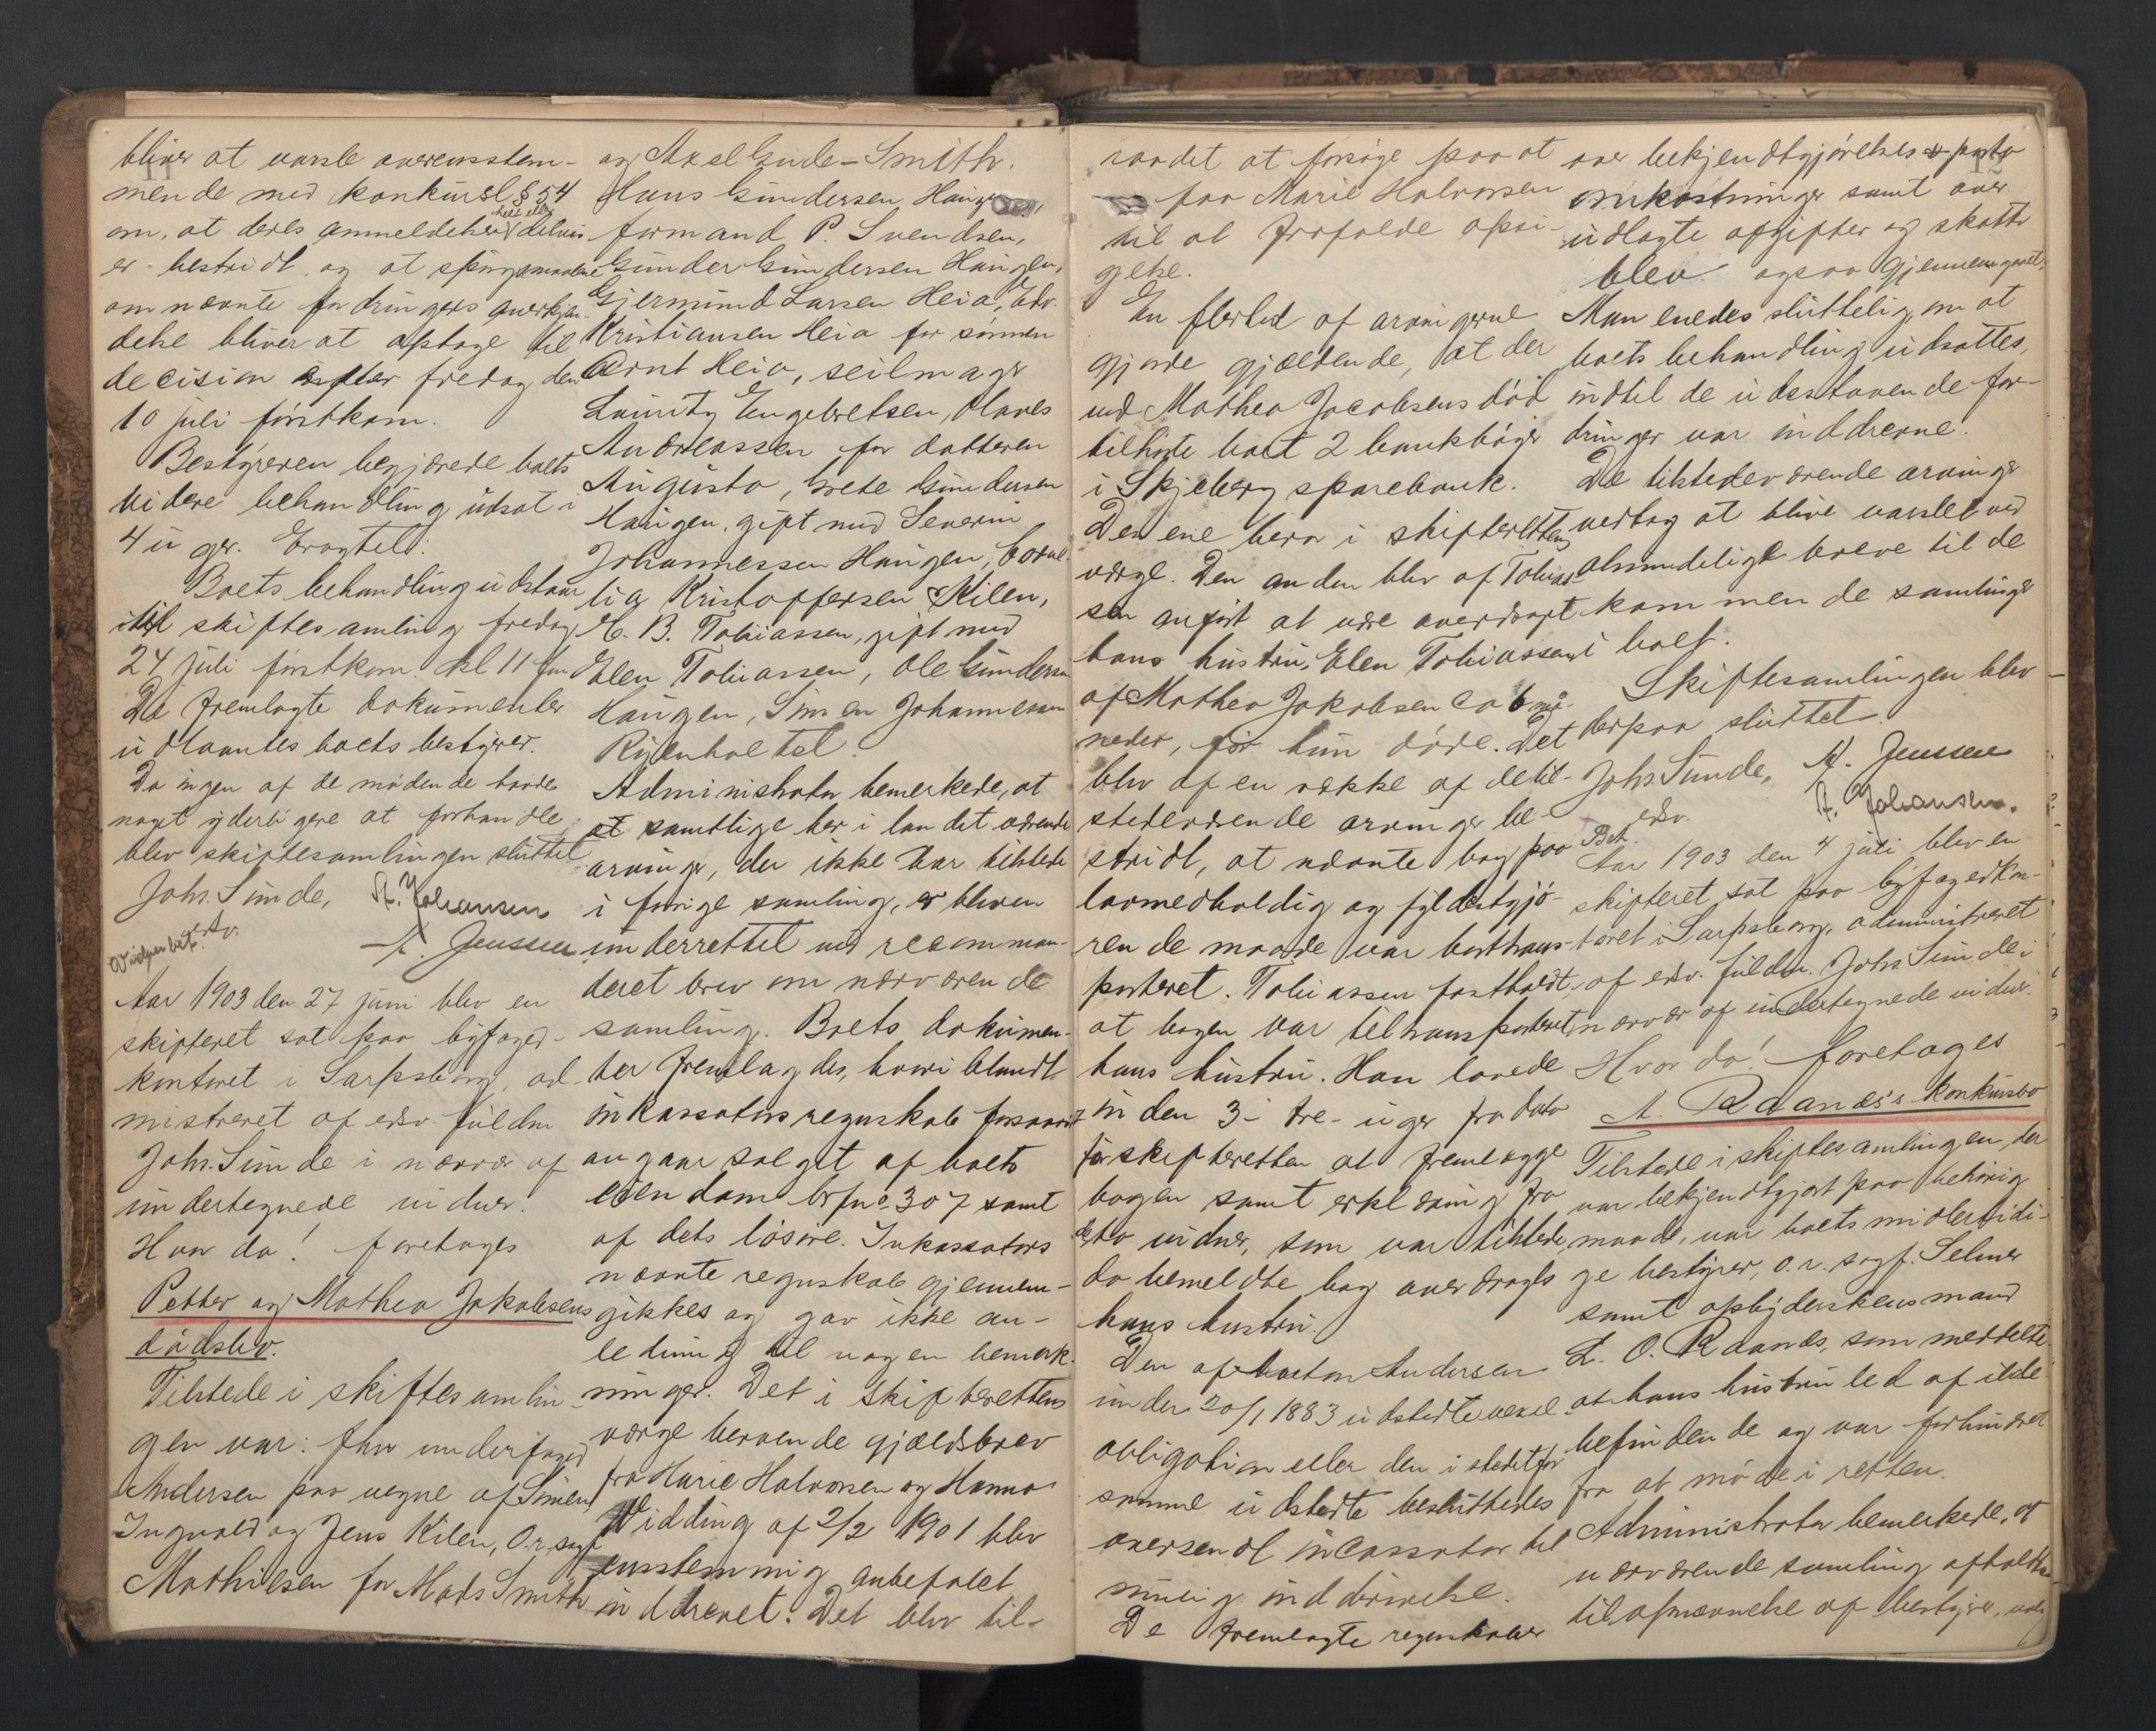 11
bliver at varsle overensstem-
mende med konkursl § 54
om, at deres anmeldelser helt eller delvis
er bestridt, og at spørgsmaalene
om nævnte fordringers anerkjen-
delse bliver at optage til
decision efter fredag den
10 juli førstkom.
Bestyreren begjærede boets
videre behandling udsat i
4 uger. Eragted:
Boets behandling udstaar
til skiftesamling fredag
24 juli førstkom. kl 11 fm
De fremlagte dokumenter
udlaantes boets bestyrer.
Da ingen af de mødende havde
noget yderligere at forhandle
blev skiftesamlingen sluttet
Johs. Sunde, A. Johansen
edsv.
A. Jenssen
Aar 1903 den 27 juni blev en
skifteret sat paa byfoged-
kontoret i Sarpsborg, ad-
mistreret af edsv. fuldm.
Johs. Sunde i nærvær af
undertegnede vidner.
Hvor da! foretages
Petter og Mathea Jakobsens
dødsbo.
Tilstede i skiftesamlin-
gen var: fhv underfoged
Andersen paa vegne af Simen,
Ingvald og Jens Kilen, O.r.sagf
Mathiesen for Mads Smith
og Axel Gude-Smith.
Hans Gundersen Haugen,
formand P. Svendsen,
Gunder Gundersen Haugen,
Gjermund Larsen Heia, Edv.
Kristiansen Heia for sønnen
Arnt Heia, seilmager
Lauritz Engebretsen, Olaves
Andreassen for datteren
Augusta, Grete Gundersen
Haugen, gift med Severin
Johannessen Haugen, Corne-
lia Kristoffersen Kilen,
C. B. Tobiassen, gift med
Elen Tobiassen, Ole Gundersen
Haugen, Simen Johannesen
Administrator bemerkede, at
at samtlige her i landet værende
arvinger, der ikke var tilstede
i forrige samling, er bleven
underrettet ved recomman-
deret brev om nærværende
samling. Boets dokumen-
ter fremlagdes, hvoriblandt
inkassators regnskab forsaavidt
angaar salget af boets
eiendom brfno 307 samt
af dets løsøre. Inkassators
nævnte regnskab gjennem-
gikkes og gav ikke an-
ledning til nogen bemærk-
ninger. Det i skifterettens
værge beroende gjældsbrev
fra Marie Halvorsen og Hanna
Widding af 2/2 1901 blev
enstemmig anbefalet
inddrevet. Det blev til-
12
raadet at forsøge paa at
faa Marie Halvorsen
til at frafalde opsi-
gelse.
En flerhed af arvingerne
gjorde gjældende, at der
ved Mathea Jacobsens død
tilhørte boet 2 bankbøger
i Skjeberg sparebank.
Den ene bero i skifterettens
værge. Den anden blev af Tobias-
sen anført at være overdraget
hans hustru, Elen Tobiassen,
af Mathea Jakobsen ca 6 må-
neder, før hun døde. Det
blev af en række af de til-
stedeværende arvinger be-
stridt, at nævnte bog paa
lovmedholdig og fyldestgjø-
rende maade var borttrans-
porteret. Tobiassen fastholdt,
at bogen var tiltransporteret
hans hustru. Han lovede
inden 3- tre- uger fra dato
for skifteretten at fremlægge
bogen samt erklæring fra
de to vidner, som var tilstede,
da bemeldte bog overdroges
hans hustru.
Den af Andersen
under 20/1 1883 udstedte vexel-
obligation eller den i stedet for
samme udstedte besluttedes
oversendt incassator til
mulig inddrivelse.
De fremlagte regnskaber
over bekjendtgjørelses & porto
omkostninger samt over
udlagte afgifter og skatte
blev ogsaa gjennemgaaet.
Man enedes sluttelig om at
boets behandling udsættes,
indtil de udestaaende for-
dringer var inddrevne.
De tilstedeværende arvinger
vedtog at blive varslet ved
almindelige breve til de
kommende samlinger
i boet.
Skiftesamlingen blev
derpaa sluttet.
Johs. Sunde, A. Jenssen
edsv. A. Johansen.
Bet.
Aar 1903 den 4 juli blev en
skifteret sat paa byfogedkon-
toret i Sarpsborg, administreret
af edsv. fuldm. Johs. Sunde i
nærvær af undertegnede vidner.
Hvor da! foretages
A. Raanæs's konkursbo
Tilstede i skiftesamlingen, der
var bekjendtgjort paa behørig
maade, var boets midlertidi-
ge bestyrer, o.r.sagf. Selmer
samt opbyderskens mand
L. O. Raanæs, som meddelte
at hans hustru led af ilde-
befindende og var forhindret
fra at møde i retten.
Administrator bemerkede, at
nærværende samling afholdtes
til opnævnelse af bestyrer, valg